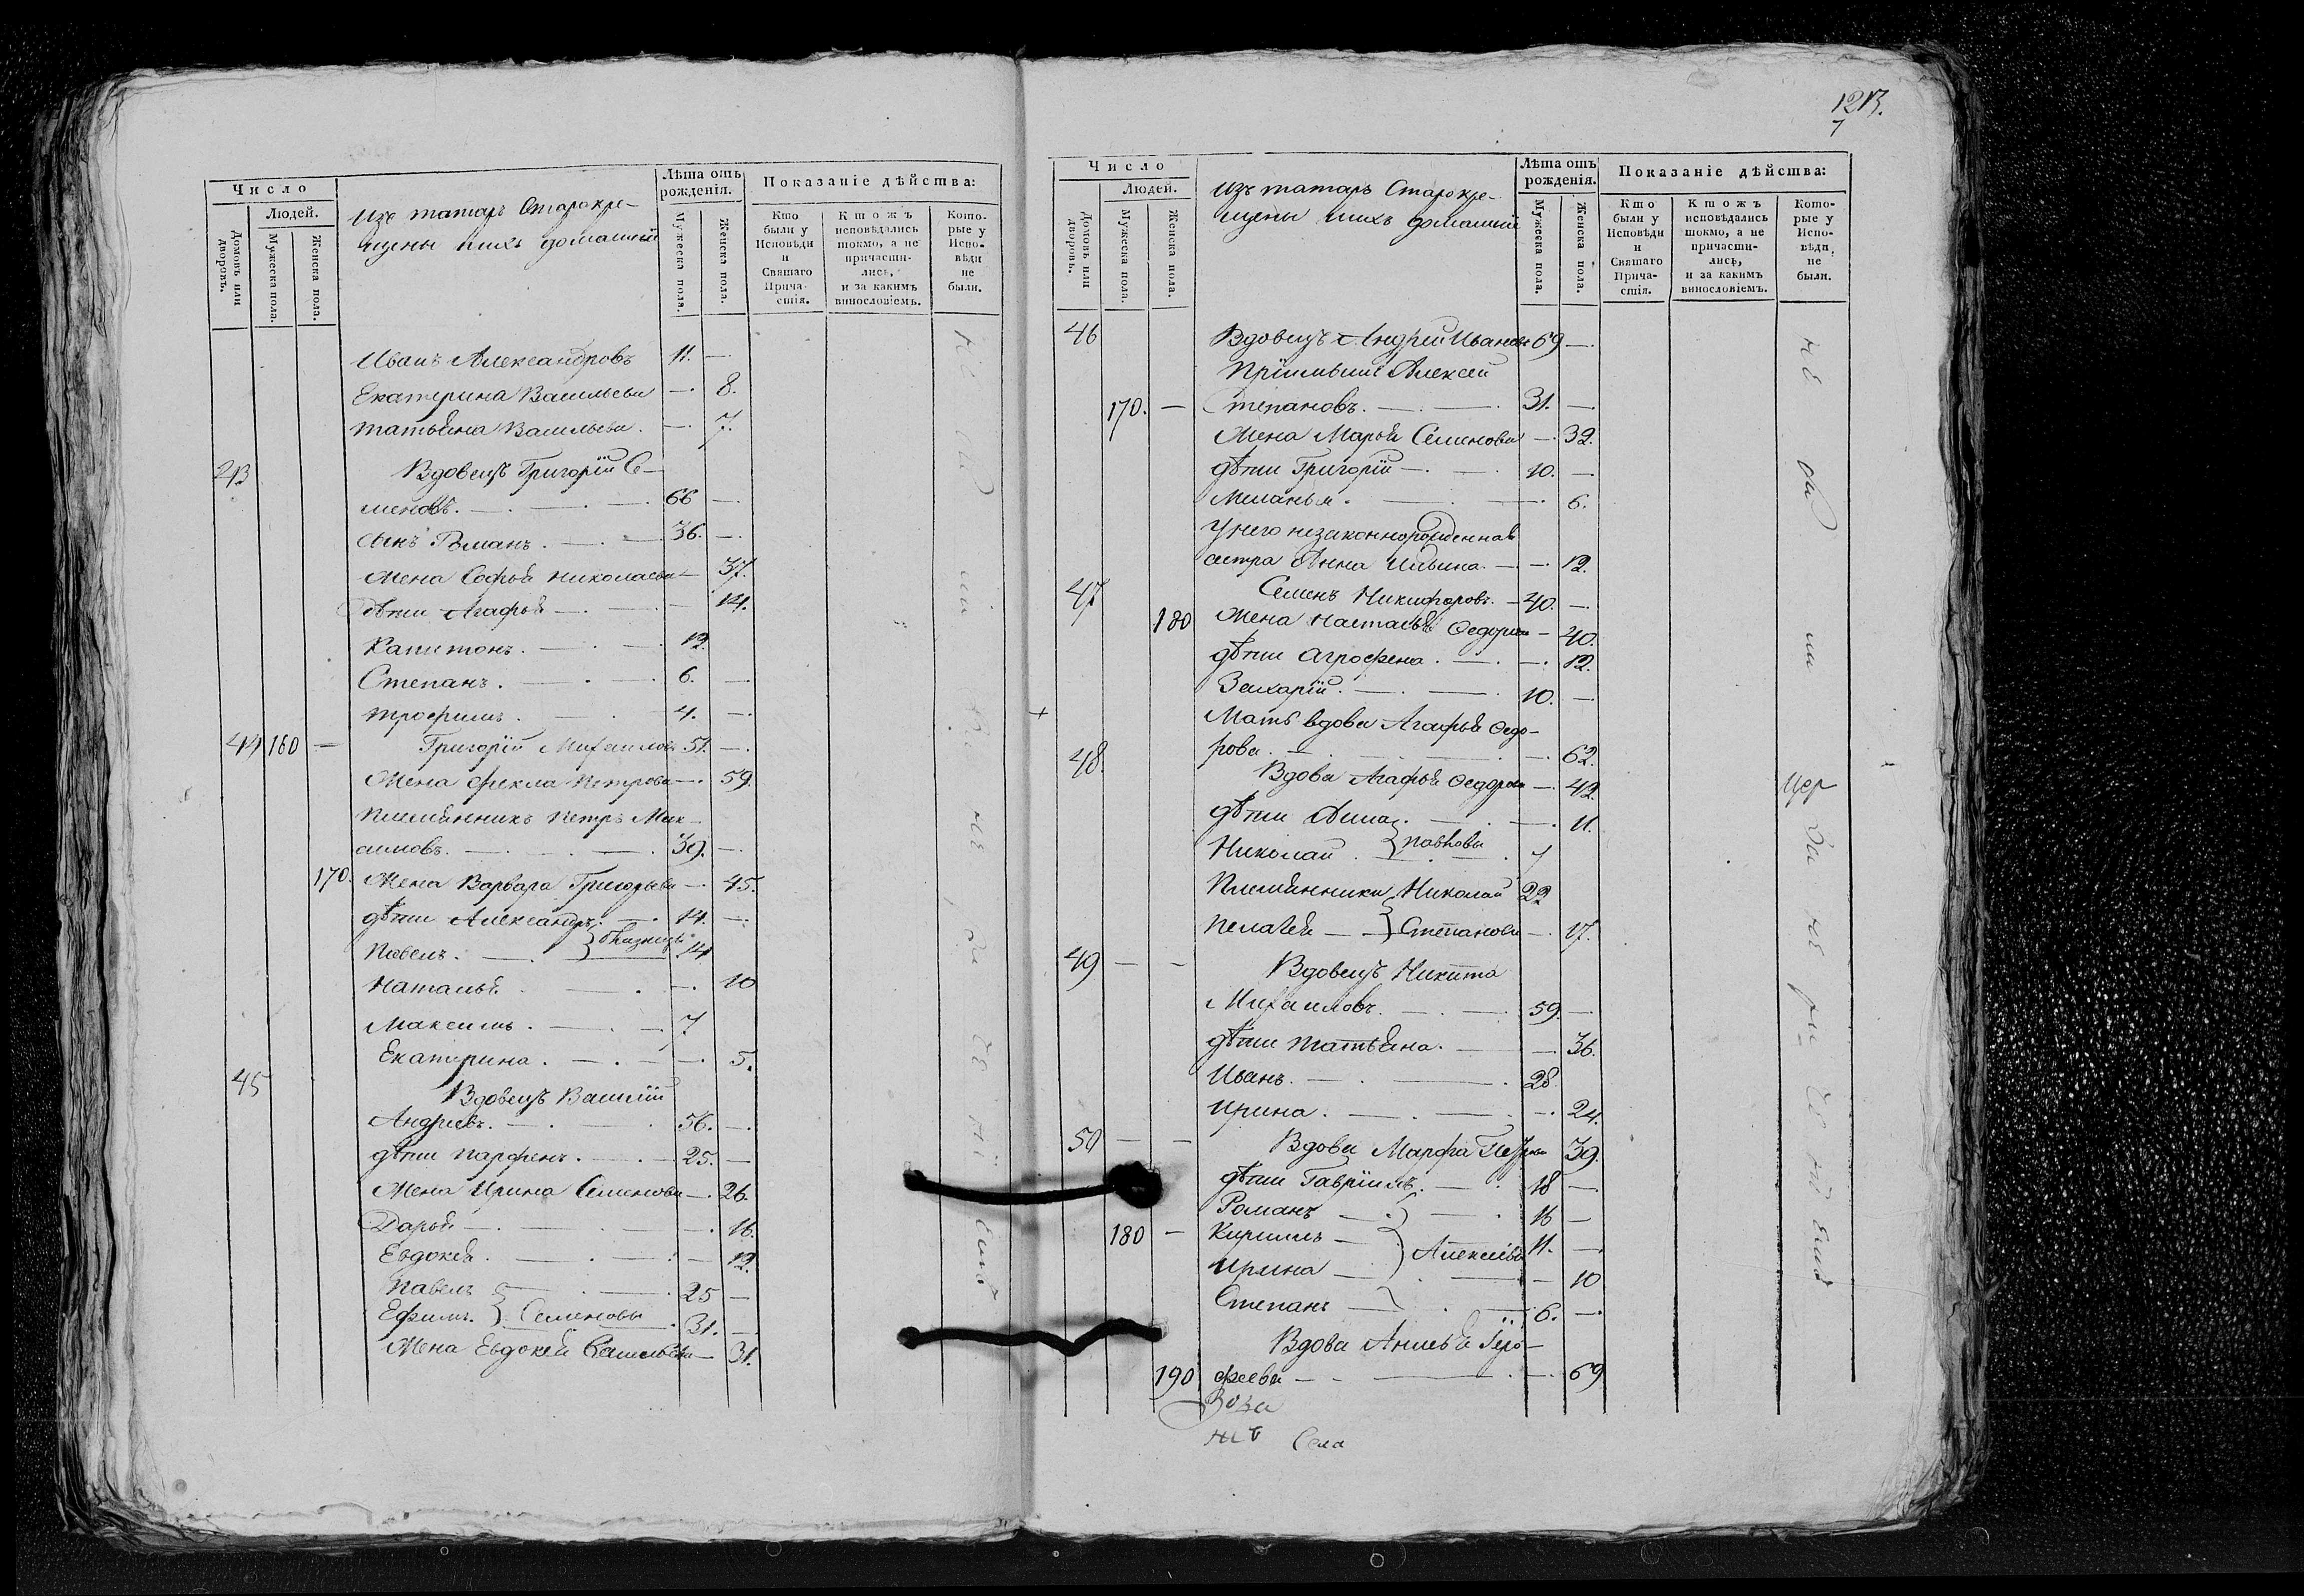 Число
Людей.
Домовъ или дворовъ.
Мужеска пола.
Женска пола.
Изъ татаръ Старокре-
щены ихъ домашніи
Лѣта отъ рожденія.
Мужеска пола.
Женска пола.
Показаніе дѣйства:
Кто были у Исповѣди и Святаго Причастія.
Ктожъ исповѣдались токмо, а не причастились, и за какимъ винословіемъ.
Которые у Исповѣди не были.
Иванъ Александровъ 11. —
Екатерина Васильева — 8.
Татьяна Васильева. — 7.
43 Вдовецъ Григорій Се-
меновъ. — 66 —
сынъ Романъ. — 36. —
Жена Софья Николаева — 37.
дѣти Агафья — — 14.
Капитонъ. — 12.
Степанъ. — 6. —
Трофимъ. — 4. —
44 160 — Григорій Михаиловъ 51. —
Жена Фекла Петрова — 59.
Племянникъ Петръ Мак-
симовъ. — 39. —
170. Жена Варвара Григорьева — 45.
дѣти Александръ — 14. —
Павелъ. — близнецы 14
Наталья. — 10
Максимъ. — 7
Екатерина. — 5.
45 Вдовецъ Василій
Андреевъ. — 56. —
дѣти Парфенъ. — 25. —
Жена Ирина Семенова — 26.
Дарья — 16.
Евдокея. — 12.
Павелъ 25 —
Ефимъ. Семеновы 31. —
Жена Евдокея Васильева — 31.
1213.
7
Число
Людей.
Домовъ или дворовъ.
Мужеска пола.
Женска пола.
Изъ татаръ Старокре-
щены ихъ домашніи
Лѣта отъ рожденія.
Мужеска пола.
Женска пола.
Показаніе дѣйства:
Кто были у Исповѣди и Святаго Причастія.
Ктожъ исповѣдались токмо, а не причастились, и за какимъ винословіемъ.
Которые у Исповѣди не были.
46 Вдовецъ Андрей Ивановъ 69 —
Алексей
170. — Степановъ. — 31. —
Жена Марья Семенова — 32.
дѣти Григорій — 10. —
Меланья. — 6.
У него незаконнорожденная
сестра Анна Ильина. — 12.
47 Семенъ Никифоровъ. — 40. —
180 Жена Настасья Ѳедорова — 40.
дѣти Агрофена. — 12.
Захарій. — 10. —
Мать вдова Агафья Ѳедо-
рова. — 62.
48. Вдова Агафья Ѳедорова — 42.
дѣти Анна. — 11.
Николай. Павловы 7
Племянники Николай 22
Пелагея — Степановы — 17.
49 — — Вдовецъ Никита
Михаиловъ. — 59. —
дѣти Татьяна. — 36.
Иванъ. — 28
Ирина. — 24.
50 — — Вдова Марфа Петрова 39.
дѣти Гавріилъ. — 18 —
Романъ — 16 —
180 — Кирилъ — Алексѣевы 11. —
Ирина — 10
Степанъ — 6. —
Вдова Анисья
190 феева — 69
Села